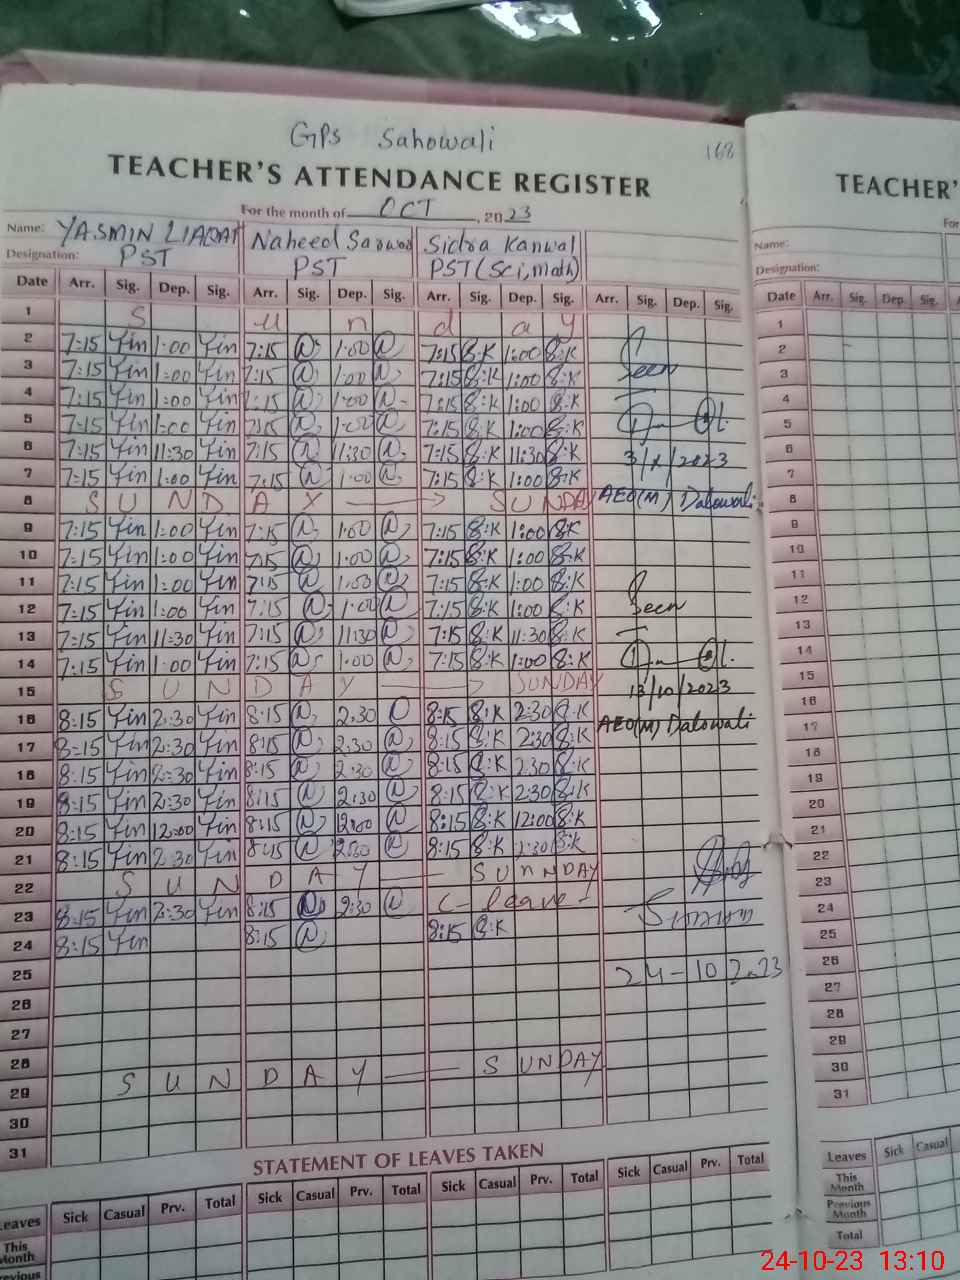 GPS Sahowali
168
TEACHER'S ATTENDANCE REGISTER
For the month of OCT, 2023
Name: YASMIN LIAQAT Naheed Sarwar Sidra Kanwal
Designation: PST PST PST (Sci, math)
Date Arr. Sig. Dep. Sig. Arr. Sig. Dep. Sig. Arr. Sig. Dep. Sig. Arr. Sig. Dep. Sig.
1 S u n d a y
2 7:15 Yin 1:00 Yin 7:15 1:00 7:15 S:K 1:00 S:K
3 7:15 Yin 1:00 Yin 7:15 1:00 7:15 S:K 1:00 S:K Seen
4 7:15 Yin 1:00 Yin 7:15 1:00 7:15 S:K 1:00 S:K
5 7:15 Yin 1:00 Yin 7:15 1:00 7:15 S:K 1:00 S:K
6 7:15 Yin 11:30 Yin 7:15 11:30 7:15 S:K 11:30 S:K
7 7:15 Yin 1:00 Yin 7:15 1:00 7:15 S:K 1:00 S:K
8 S U N D A Y SUNDAY AEO(M) Dalowali
9 7:15 Yin 1:00 Yin 7:15 1:00 7:15 S:K 1:00 S:K
10 7:15 Yin 1:00 Yin 7:15 1:00 7:15 S:K 1:00 S:K
11 7:15 Yin 1:00 Yin 7:15 1:00 7:15 S:K 1:00 S:K
12 7:15 Yin 1:00 Yin 7:15 1:00 7:15 S:K 1:00 S:K Seen
13 7:15 Yin 11:30 Yin 7:15 11:30 7:15 S:K 11:30 S:K
14 7:15 Yin 1:00 Yin 7:15 1:00 7:15 S:K 1:00 S:K
15 S U N D A Y SUNDAY 13/10/2023
16 8:15 Yin 2:30 Yin 8:15 2:30 8:15 S:K 2:30 S:K AEO(M) Dalowali
17 8:15 Yin 2:30 Yin 8:15 2:30 8:15 S:K 2:30 S:K
18 8:15 Yin 2:30 Yin 8:15 2:30 8:15 S:K 2:30 S:K
19 8:15 Yin 2:30 Yin 8:15 2:30 8:15 S:K 2:30 S:K
20 8:15 Yin 12:00 Yin 8:15 12:00 8:15 S:K 12:00 S:K
21 8:15 Yin 2:30 Yin 8:15 2:30 8:15 S:K 2:30 S:K
22 S U N D A Y SUNNDAY
23 8:15 Yin 2:30 Yin 8:15 2:30 C-leave-
24 8:15 Yin 8:15 8:15 S:K
25 24-10 2023
26
27
28
29 S U N D A Y S UNDAY
30
31
STATEMENT OF LEAVES TAKEN
Leaves Sick Casual Prv. Total Sick Casual Prv. Total Sick Casual Prv. Total Sick Casual Prv. Total
This Month
TEACHER'
Name:
Designation:
Date Arr. Sig. Dep. Sig.
1
2
3
4
5
6
7
8
9
10
11
12
13
14
15
16
17
18
19
20
21
22
23
24
25
26
27
28
29
30
31
Leaves Sick Casual
This Month
Previous Month
Total
24-10-23 13:10